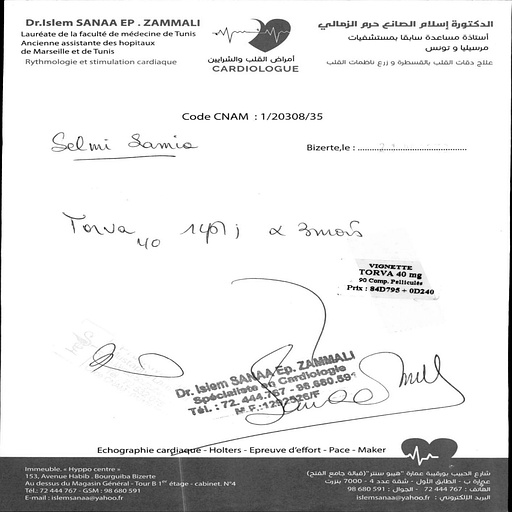 Dr.Islem SANAA EP . ZAMMALI
Lauréate de la faculté de médecine de Tunis
Ancienne assistante des hopitaux
de Marseille et de Tunis
Rythmologie et stimulation cardiaque
أمراض القلب والشرايين
CARDIOLOGUE
الدكتورة إسلام الصانع حرم الزمالي
أستاذة مساعدة سابقا بمستشفيات
مرسيليا و تونس
علاج دقات القلب بالقسطرة و زرع ناظمات القلب
Code CNAM : 1/20308/35
Selmi Samia
Bizerte,le :
Torva 40 1cp/j x 3mois
VIGNETTE
TORVA 40 mg
90 Comp. Pelliculés
Prix : 84D795 + 0D240
Dr. Islem SANAA Ep. ZAMMALI
Spécialiste en Cardiologie
Tél. : 72. 444.767 - 98.680.591
M.F.:1292526/F
Echographie cardiaque - Holters - Epreuve d'effort - Pace - Maker
Immeuble. « Hyppo centre »
153, Avenue Habib . Bourguiba Bizerte
Au dessus du Magasin Général - Tour B 1er étage - cabinet. N°4
Tél.: 72 444 767 - GSM : 98 680 591
E-mail : islemsanaa@yahoo.fr
شارع الحبيب بورقيبة عمارة "هيبو سنتر"(قبالة جامع الفتح)
عمارة ب - الطابق الأول - شقة عدد 4 - 7000 بنزرت
الهاتف : 767 444 72 - الجوال : 591 680 98
البريد الإلكتروني : islemsanaa@yahoo.fr